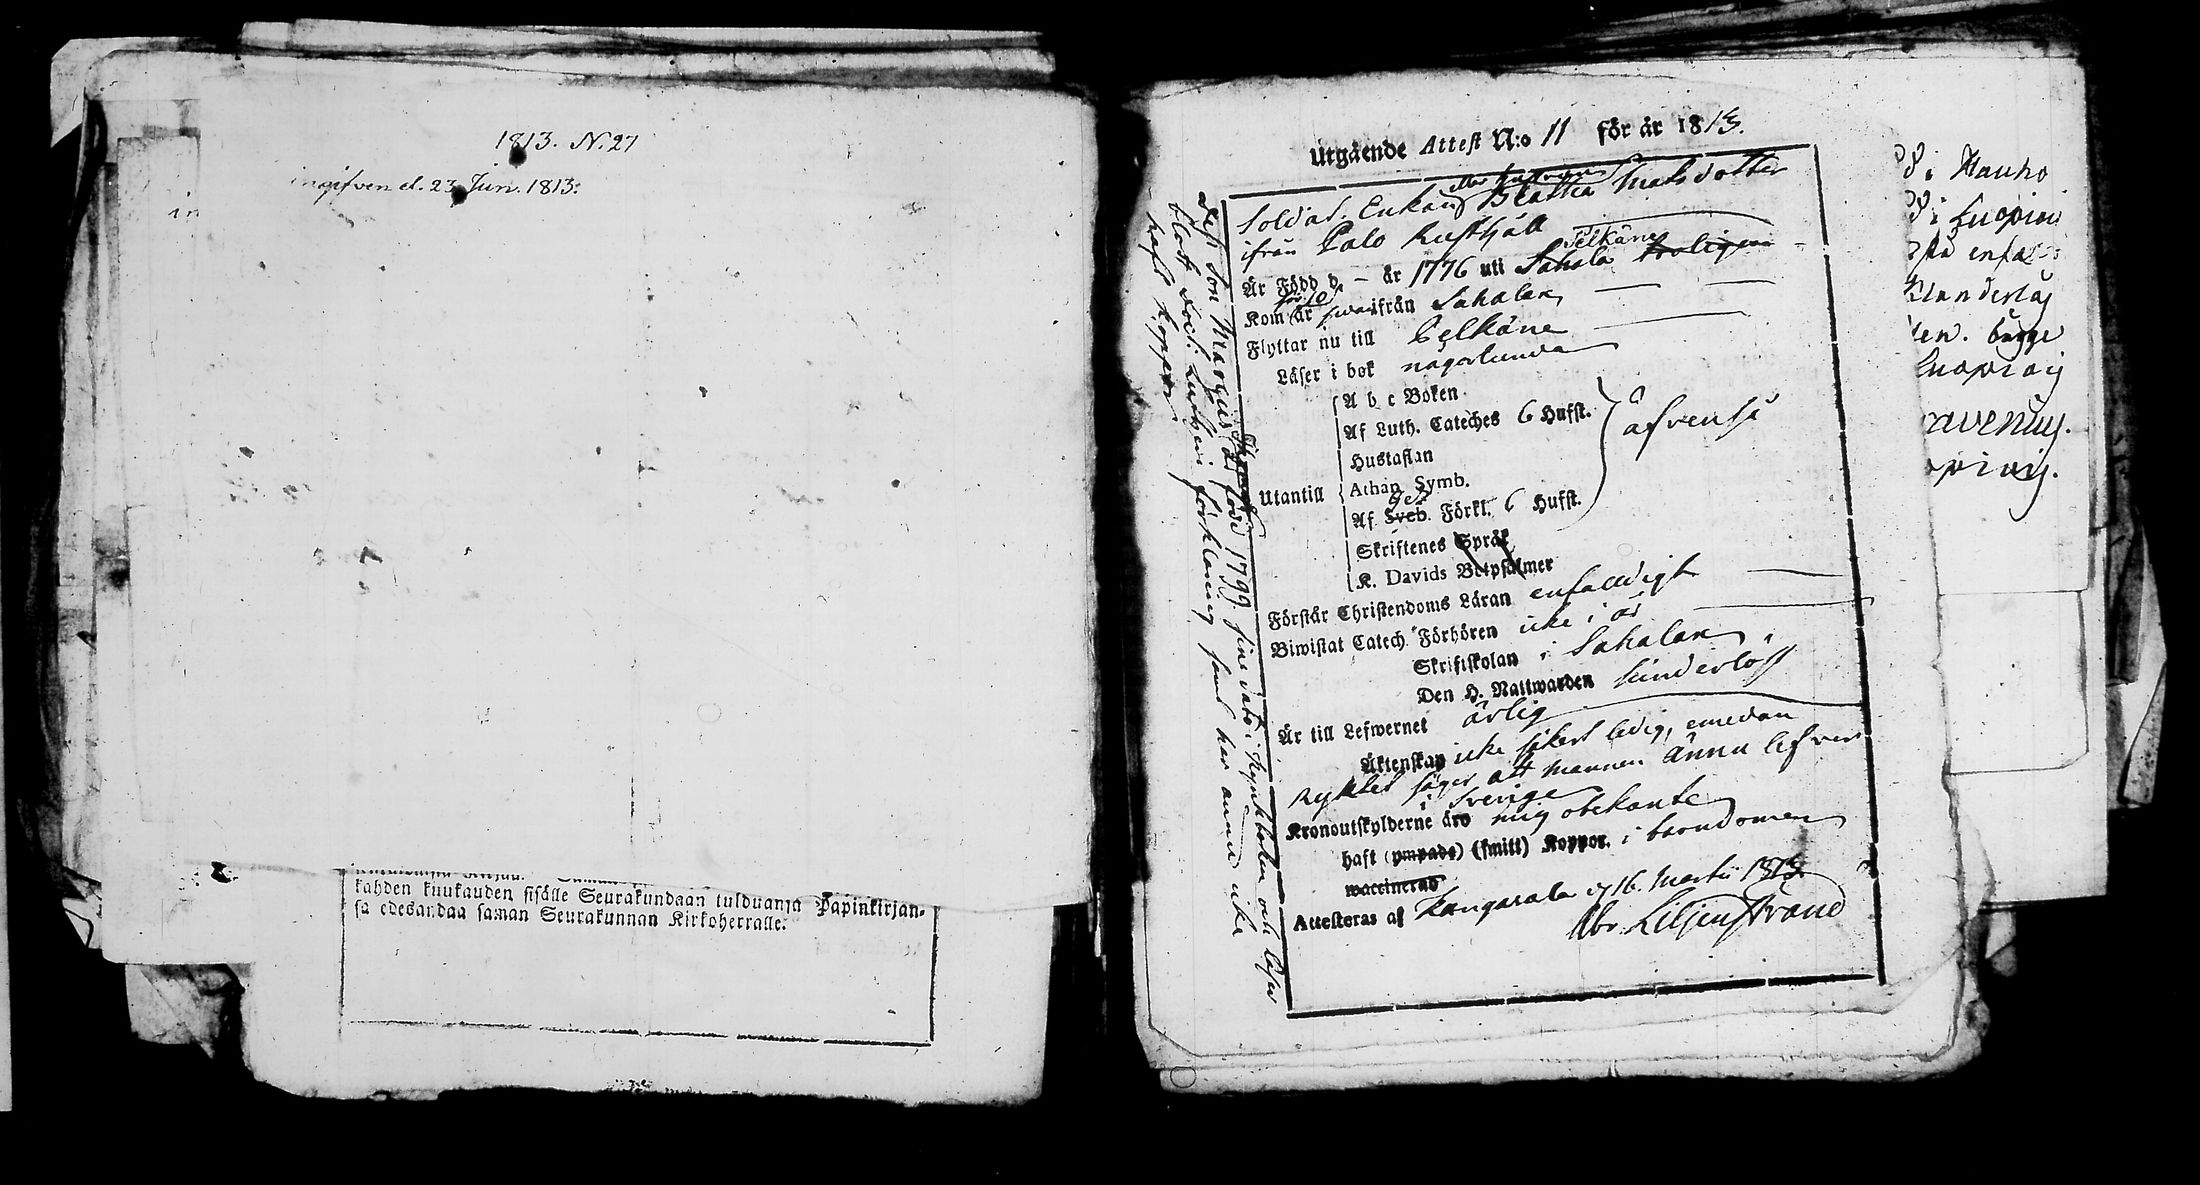 1813. N. 27
ingifven d. 23 Jun. 1813:
in
kahden kuukauden sisälle Seurakundaan tulduanſa Papinkirjan-
ſa edesandaa ſaman Seurakunnan Kirkoherralle.
Utgående Attest N:o 11 för år 1813.
eller hustrun
Soldat. Enkan Beatha Matsdotter
ifrån Palo Rusthåll
Pelkäne
Är Född d. – år 1776 uti Sahala troligen
Kom år ifrån Sahalax
Flyttar nu till Pelkäne
Läſer i bok någorlunda
Utantill
A b c Boken
Af Luth. Cateches 6 Hufſt.
Hustaflan
Athan. Symb.
Af Sveb. Förkl. 6 Hufſt.
Skriftenes Språk
K. Davids Botpſalmer
äfvenså
Förſtår Chriſtendoms Läran enfaldigt
Biwiſtat Catech. Förhören icke i år
Skriftſkolan i Sahalax
Den H. Nattwarden
Är till Lefwernet ärlig
Äktenſkap icke säkert ledig, emedan
ryktet säger att mannen ännu lefver
i Sverige
Kronoutſkylderne äro mig obekante
haft (ympade) (ſmitt) Koppor. i barndomen
waccinerad
Atteſteras af Kangasala d 16. Martii 1813.
Abr. Liljenstrand
Dess Son Marcus född 1799 och läser
blott Doct. Luthers förklaring samt har ännu icke
haft koppor
i Luopiois